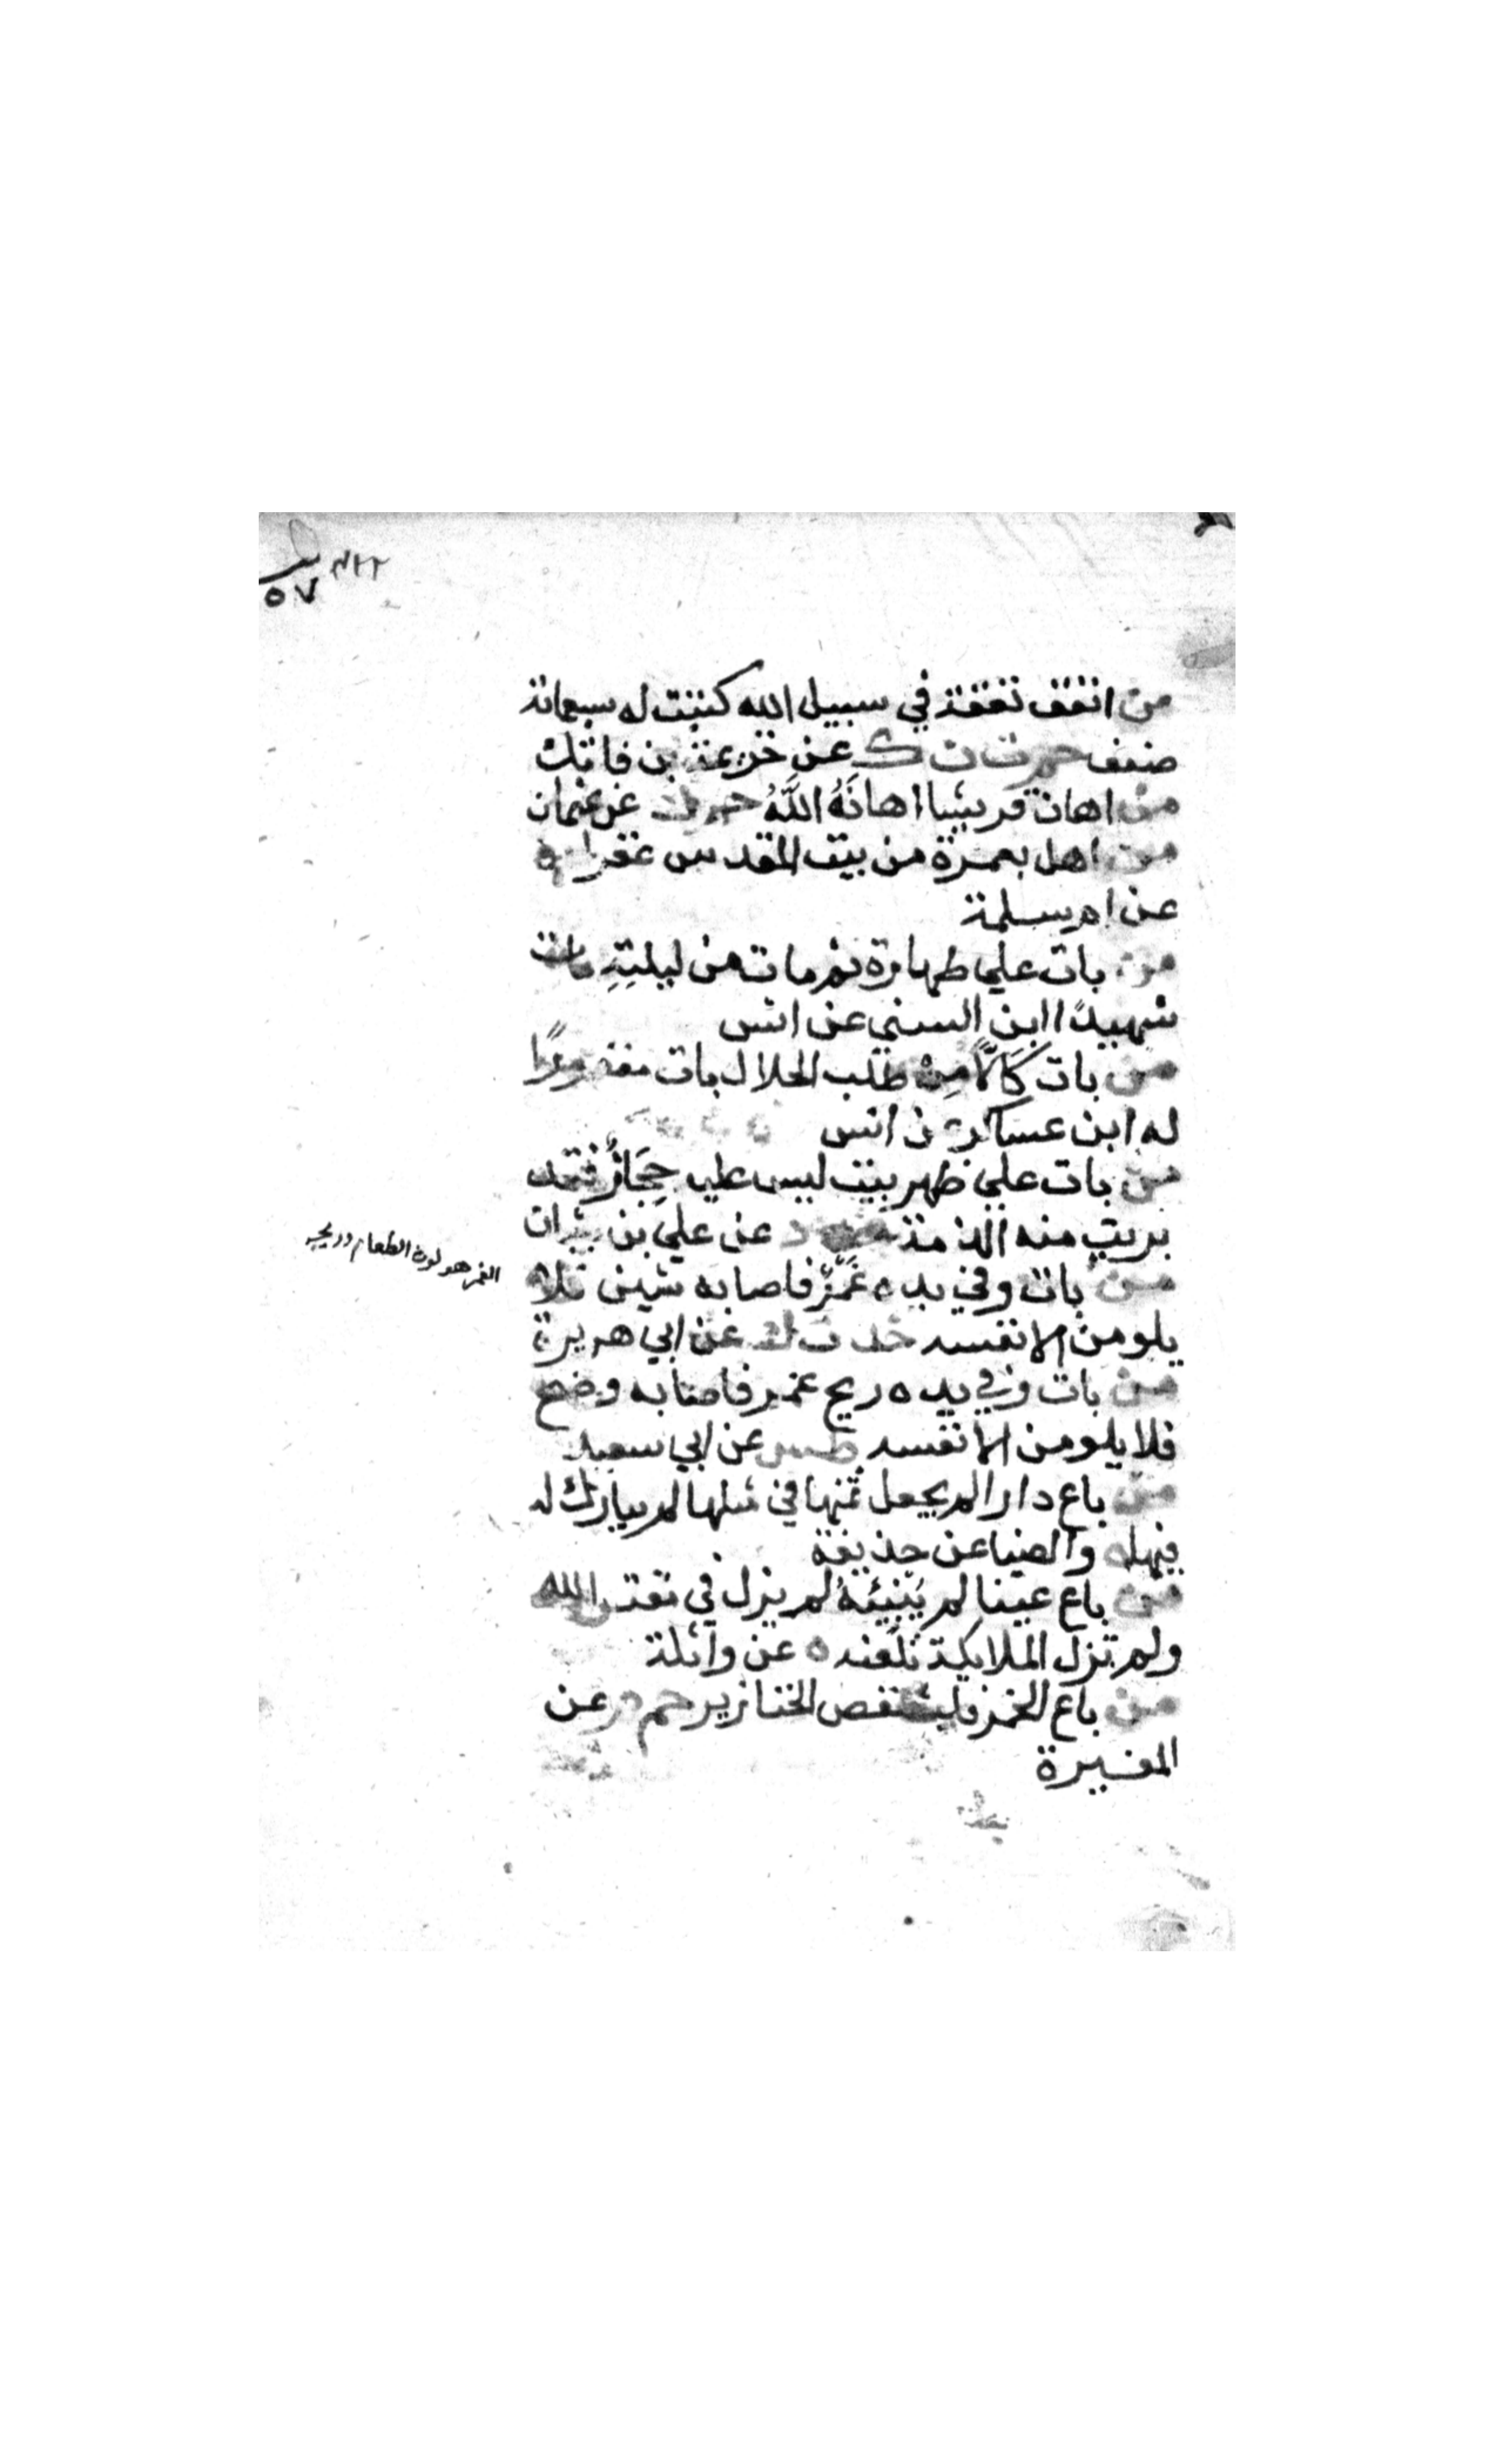 من انفق نفقة في سبيل الله كتبت له سبعمائة
ضعف حم ت ن ك عن خريمة بن فاتك
من اهان قريشا اهانَهُ اللَّهُ حم ك عن عثمان
من اهل بعمرة من بيت المقدس غفر له ه
عن ام سلمة
من بات علي طهارة ثم مات من ليلتِهِ مات
شهيدًا ابن السني عن انس
من بات كَالًّا مِن طلب الحلال بات مغفورًا
له ابن عساكر عن انس
من بات علي ظهر بيت ليس عليه حِجَازٌ فقد
بريت منه الذمة خد د عن علي بن شيبان
من بات وفي يده غَمَرٌ فاصابه شين فلا
يلومن الا نفسه خد ت ك عن ابي هريرة
من بات وفي يده ريح غمر فاصابه وضح
فلا يلومن الا نفسه طس عن ابي سعيد
من باع دارا لم يجعل ثمنها في مثلها لم يبارك له
فيها ه والضيا عن حذيفة
من باع عيبا لم يُبَيِّنْهُ لم يزل في مقت الله
ولم تزل الملايكة تلعنه ه عن واثلة
من باع الخمر فليشقص الخنازير حم د عن
المغيرة
الغمر هو لون الطعام وريحه
٥٧